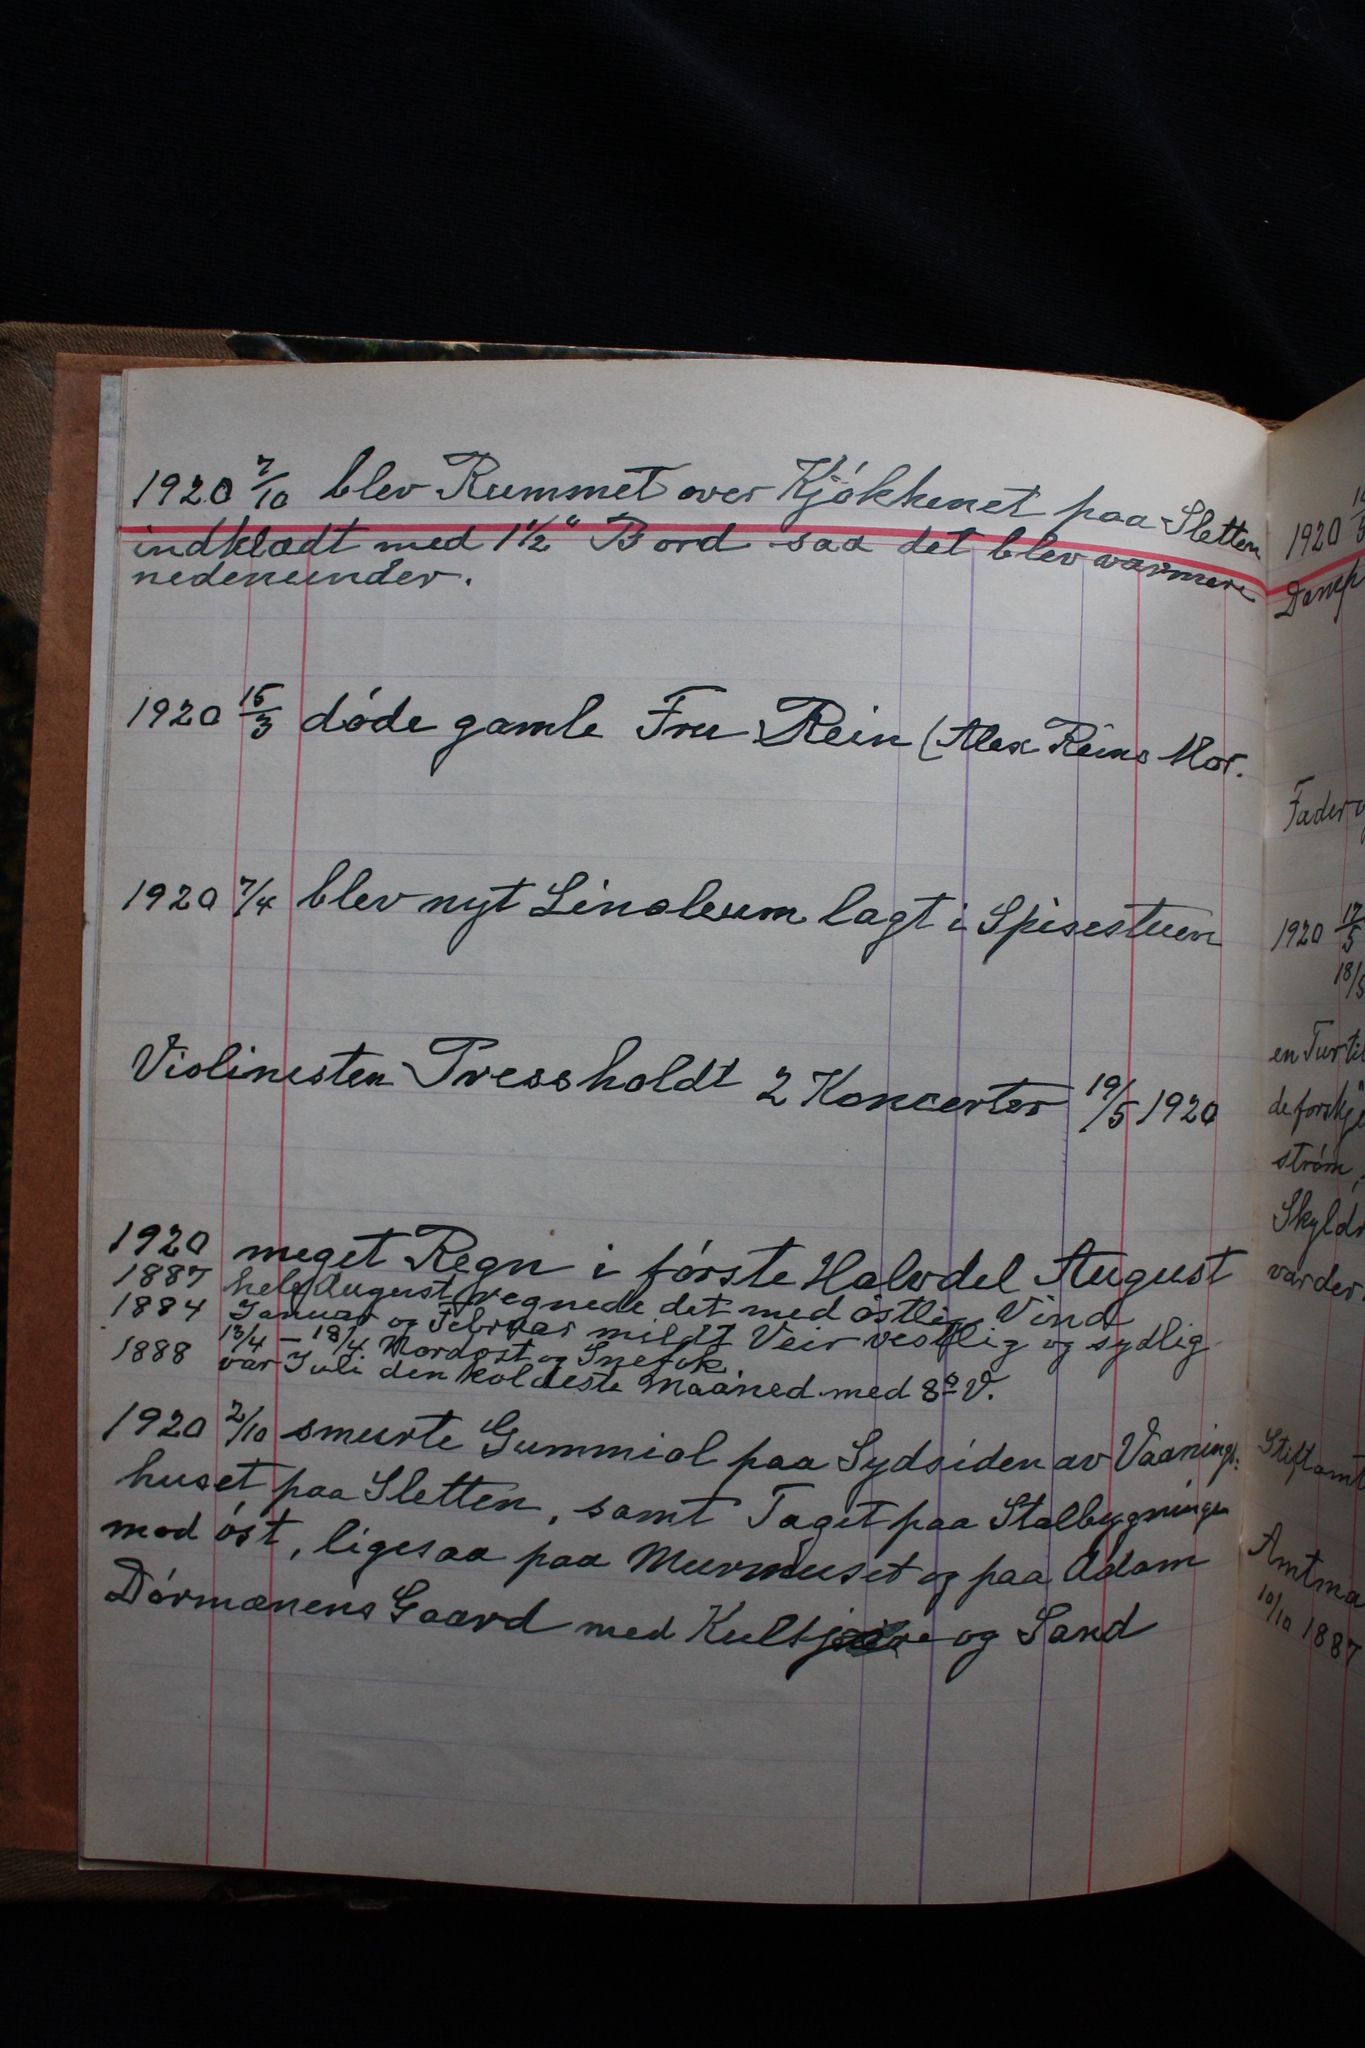 1920 7/10 blev Rummet over Kjókkenet paa Sletten
indklædt med 1 1/2" Bord saa det blev varmere
nedenunder.
1920 15/3 dóde gamle Fru Rein (Alex Reins Mor.
1920 7/4 blev nyt Linoleum lagt i Spisestuen
Violinisten Pressholdt 2 Koncerter 19/5 1920
1920 meget Regn i fórste Halvdel August
1887 hele August regnede det med óstlig Vind
1884 Januar og Februar mildt Veir vestlig og sydlig
13/4 – 18/4 Nordost og Snefok
1888 var Juli den koldeste Maaned med 8° V.
1920 2/10 smurte Gummiol paa Sydsiden av Vaanings-
huset paa Sletten, samt Taget paa Stalbygningen
mod óst, ligesaa paa Murmuset og paa Adam
Dórmænens Gaard med Kultjære og Sand
1920
Damp
Fader
1920 17/5
18/5
en Tur til
de forskje
stróm,
Skylds
var der
Stiftamt
Amtma
10/10 1887